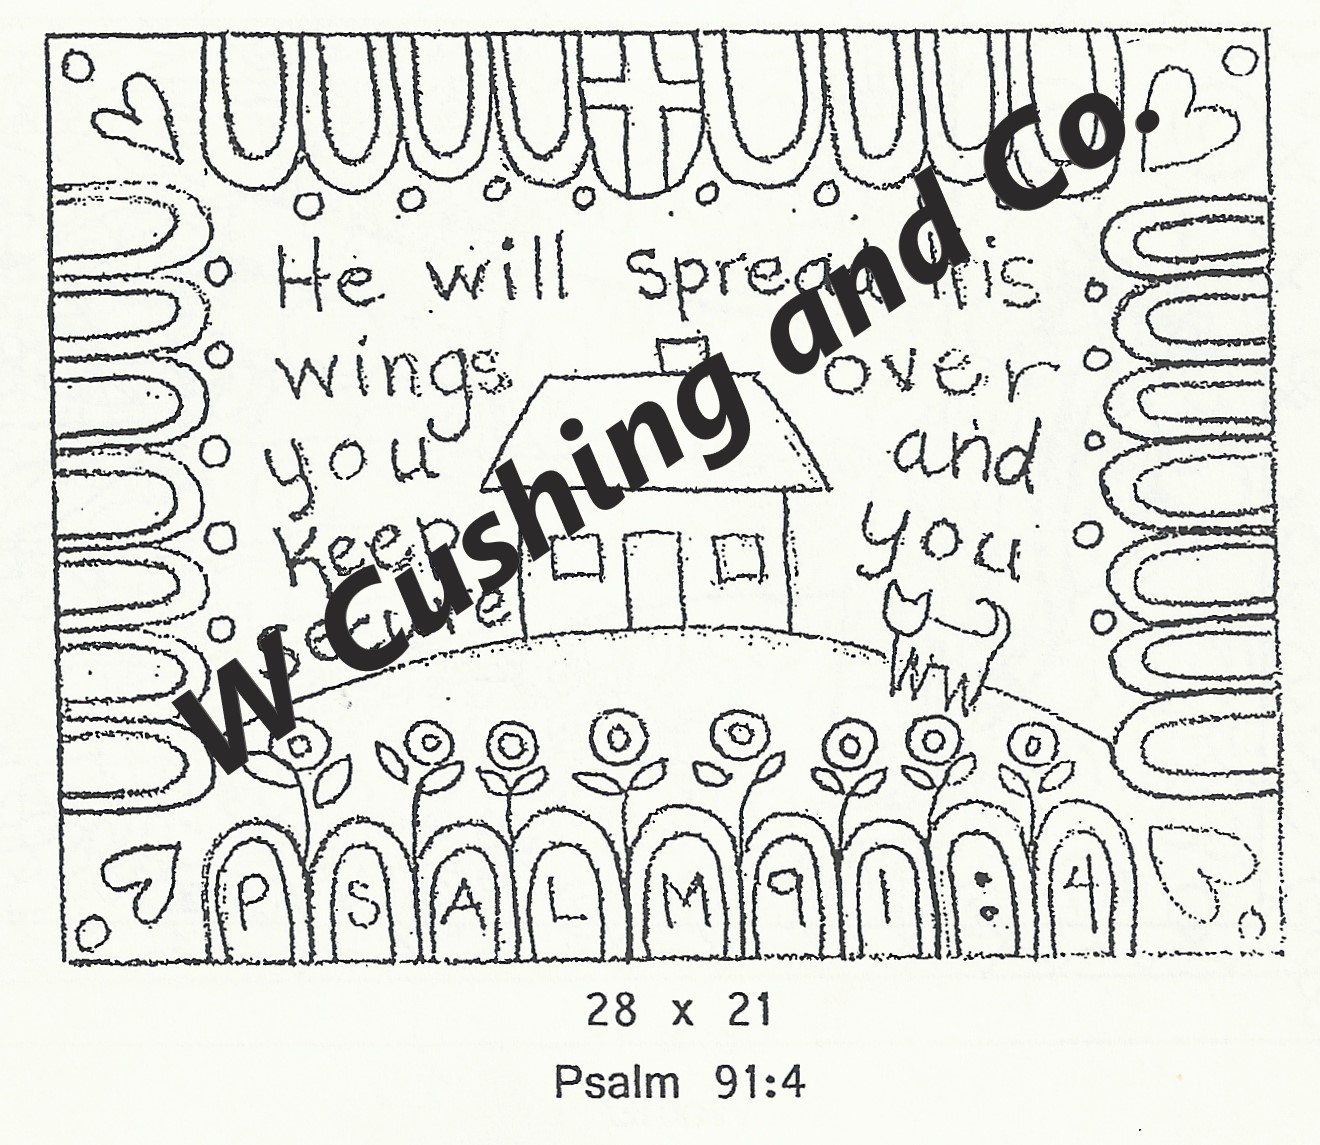 He will Spread His
wings over
you and
Keep you
Secure
PSALM 91:4
W Cushing and Co.
28 x 21
Psalm 91:4